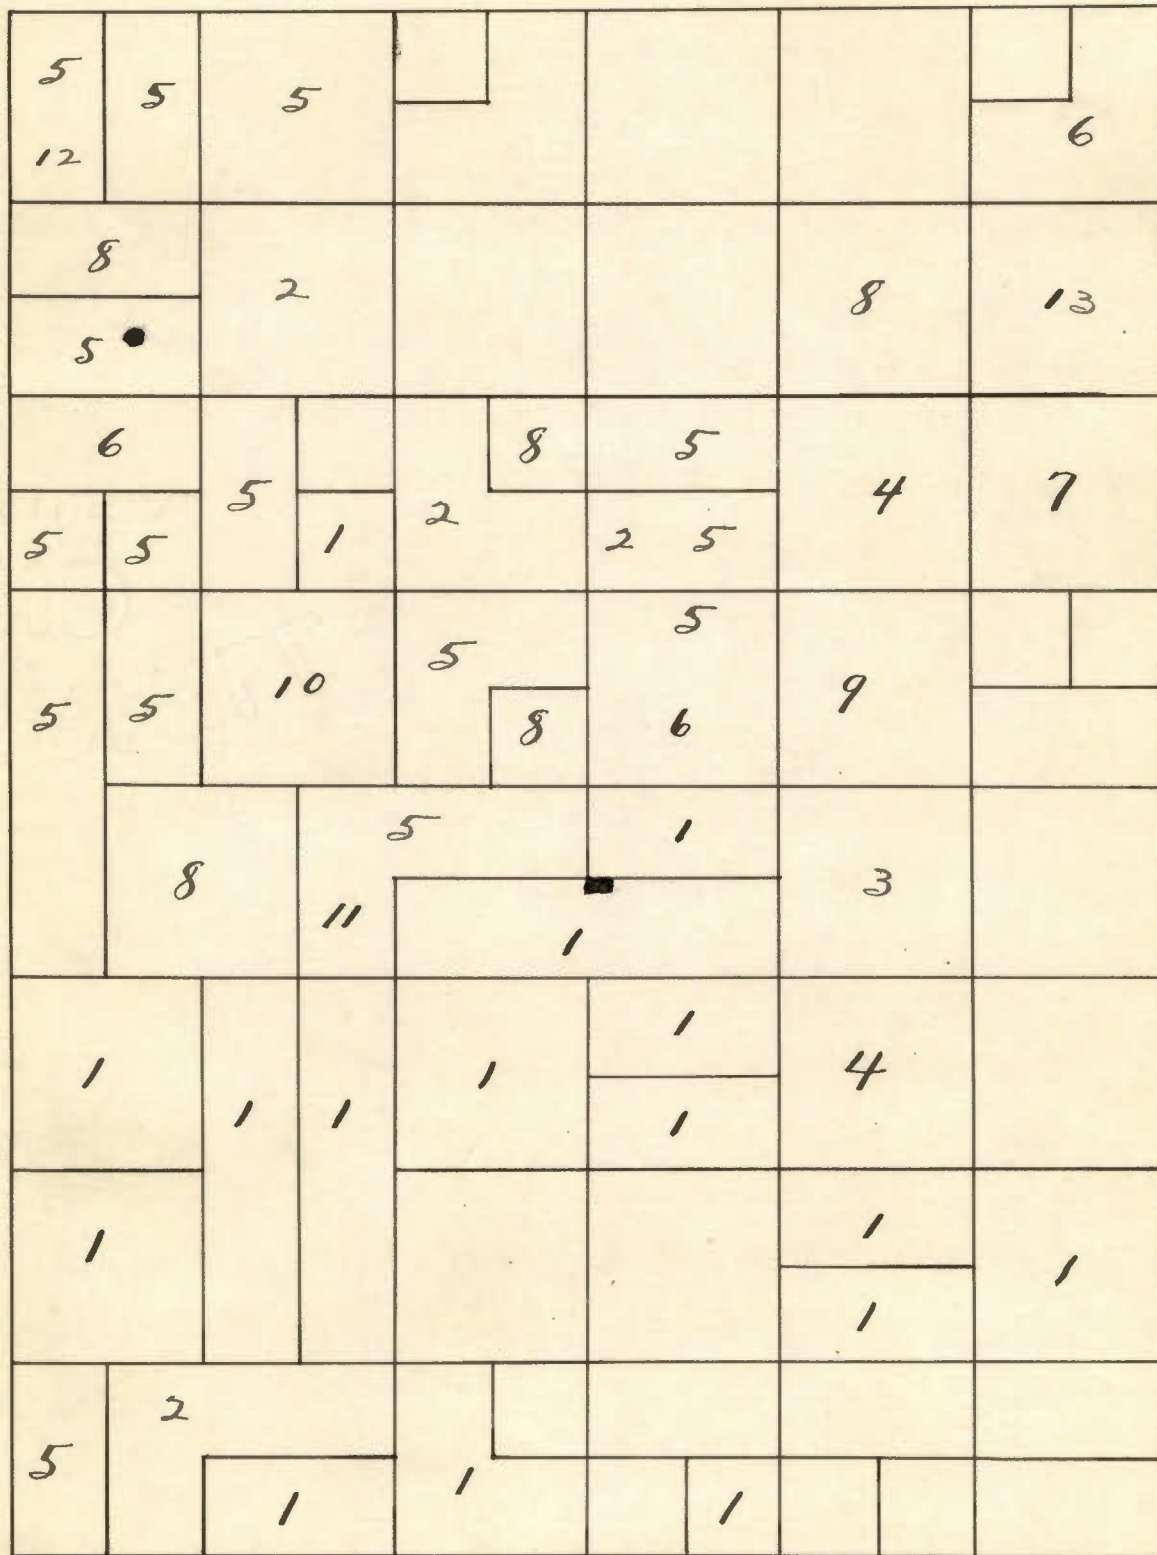 5 5 5
12 6
8 2 8 13
5
6 5 8 5 4 7
5 5 1 2 2 5
5 5 10 5 5 9
8 6
8 5 1 3
11 1
1 1 1 1 1 4
1
1 1
1
1
5 2 1 1 1